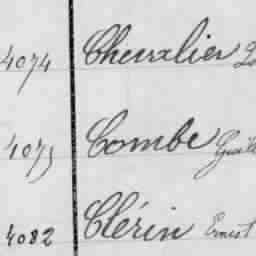 4074 Chevalier
4075 Combe
4082 Clérin Ernest